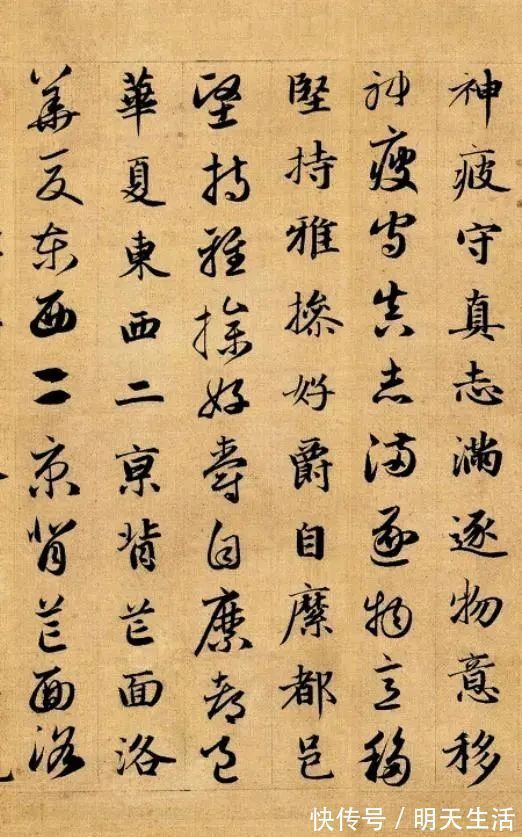 神疲守真志滿逐物意移
神疲守真志滿逐物意移
堅持雅操好爵自縻都邑
堅持雅操好爵自縻都邑
華夏東西二京背芒面洛
華夏東西二京背芒面洛
快传号 / 明天生活